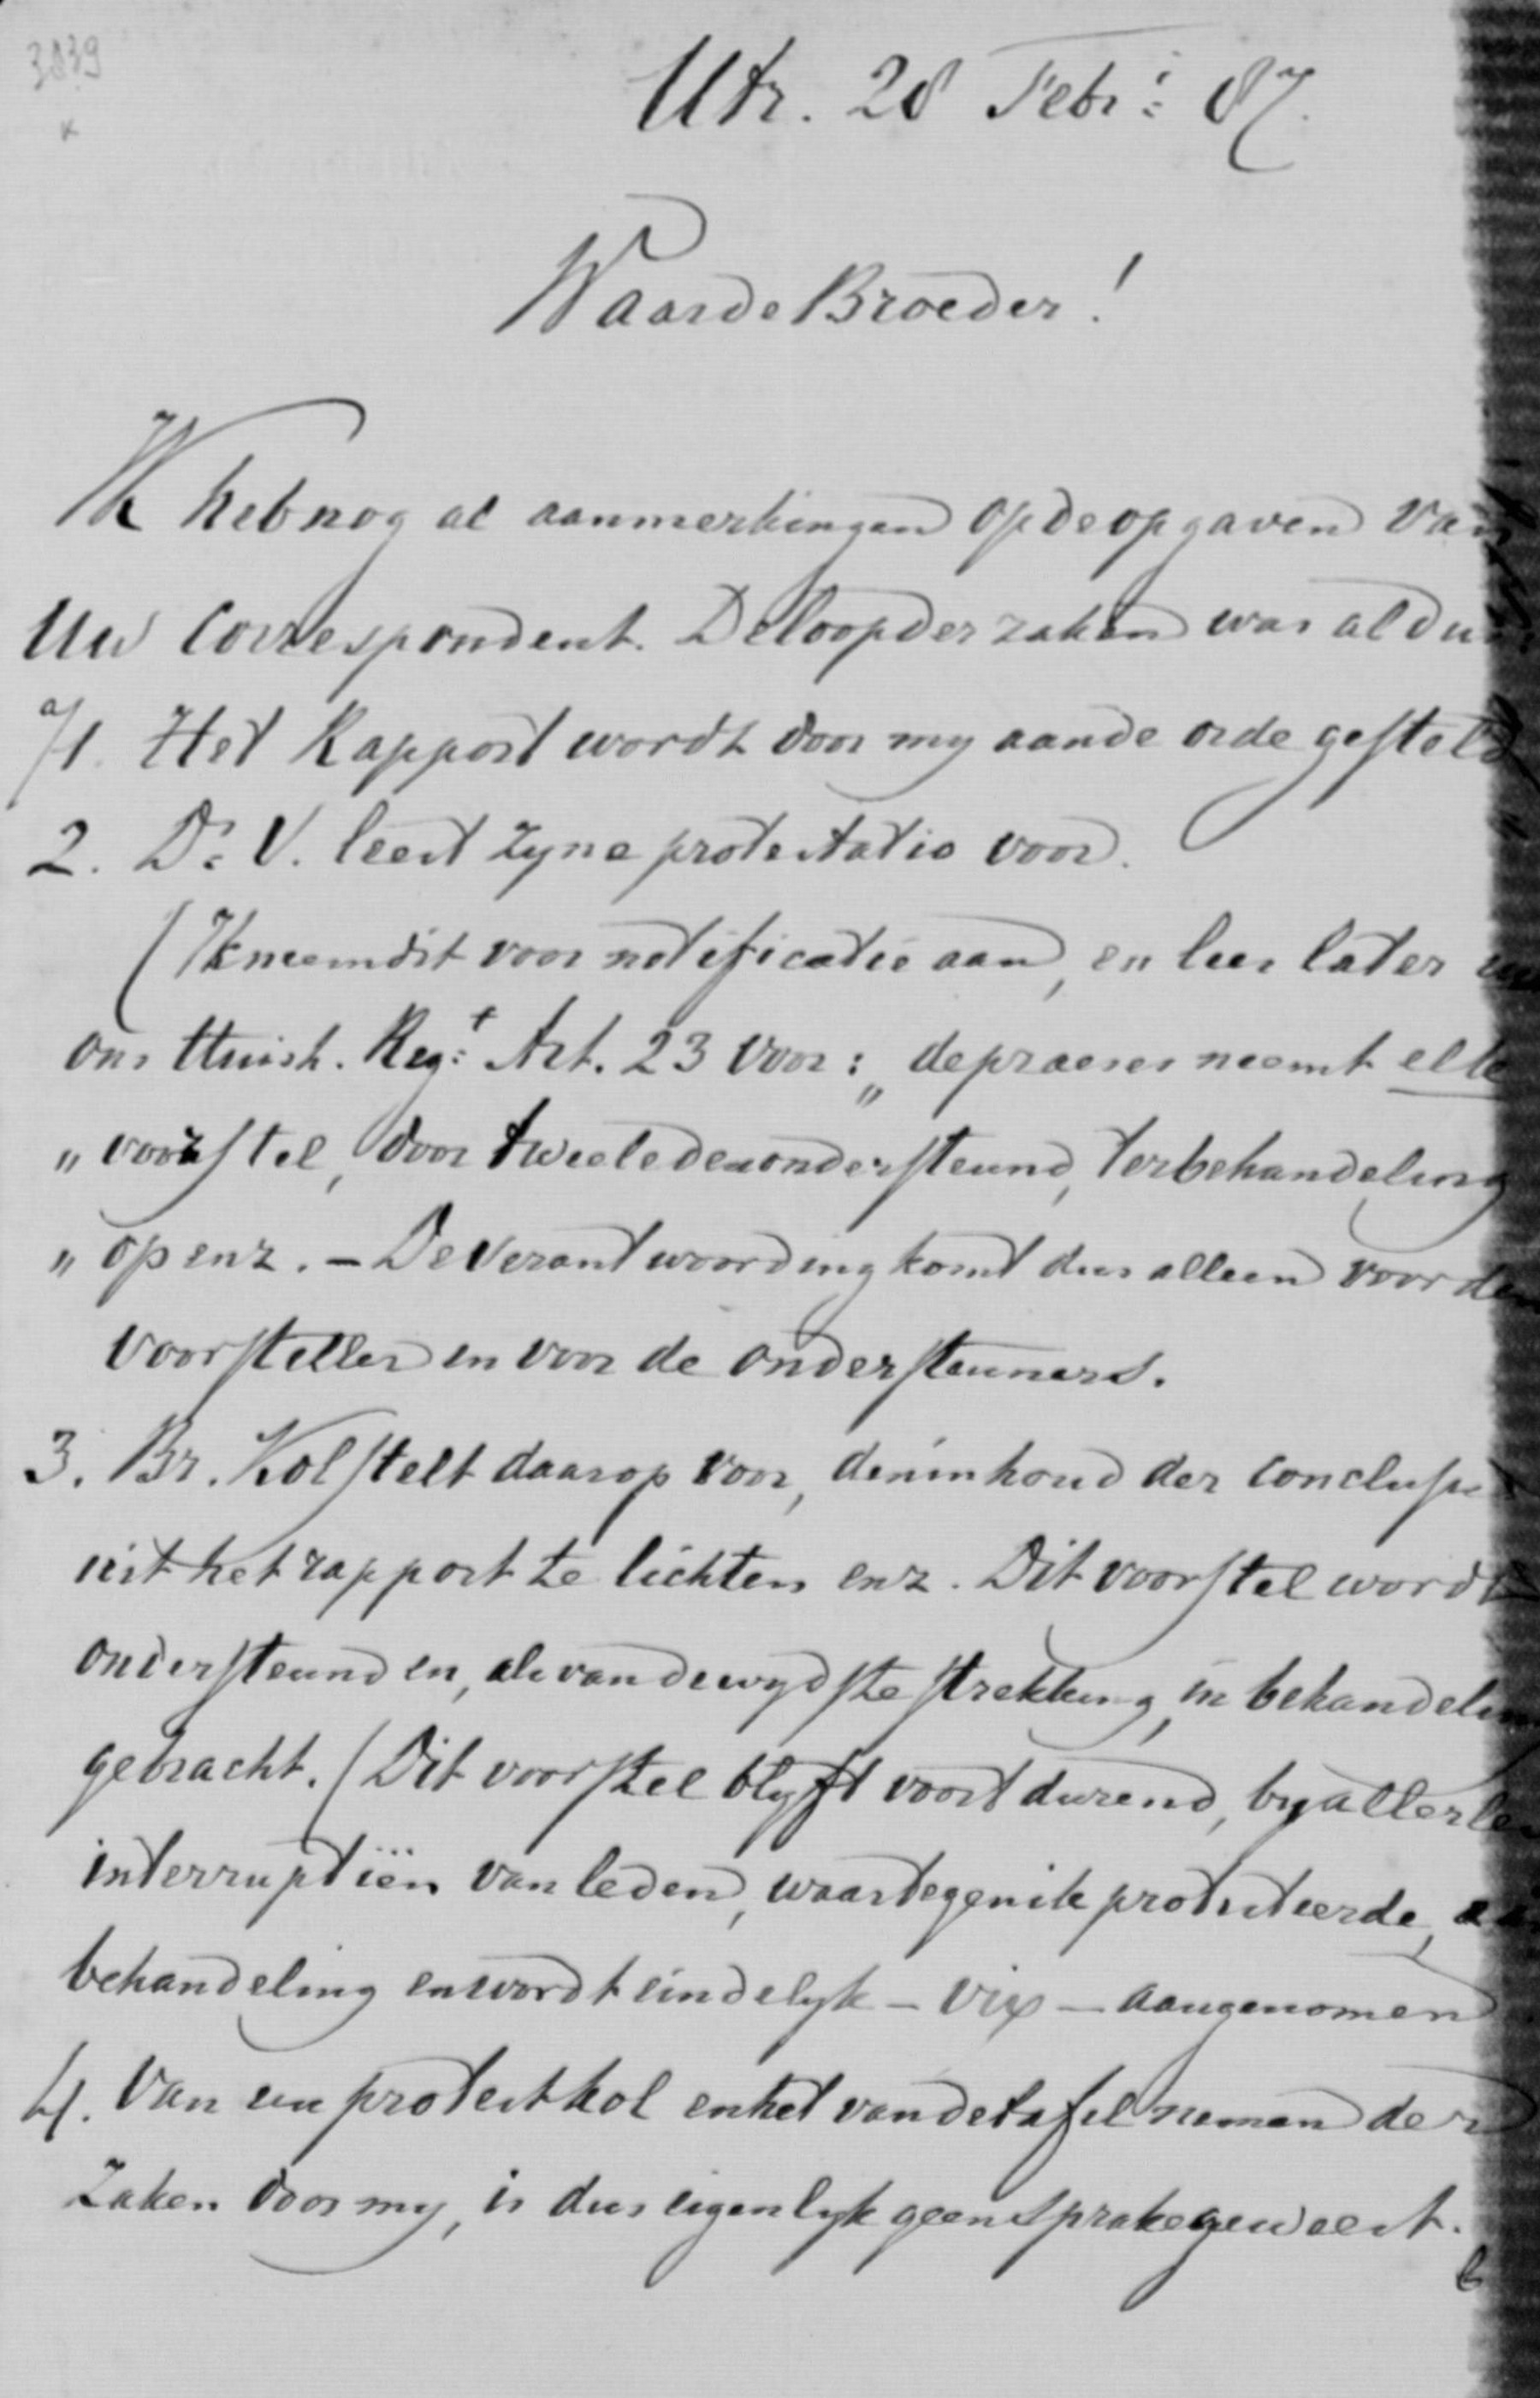 3839
Utr. 28 Febr: 87.
Waarde Broeder!
Ik heb nog al aanmerkingen op de opgaven van
Uw Correspondent. De loop der zaken was aldus
a/1. Het Rapport wordt door my aan de orde gesteld
2. Ds. V. leest zyne protestatio voor.
(Ik neem dit voor notificatie aan, en lees later
ons Huish. Regt. Art. 23 voor: „de praeses neemt elk
„voorstel, door twee leden ondersteund, ter behandeling
„op enz. – De verantwoording komt dus alleen voor den
voorsteller en voor de ondersteuners.
3. Br. Kol stelt daarop voor, den inhoud der conclusie
uit het rapport te lichten enz. Dit voorstel wordt
ondersteund en, als van de wydste strekking, in behandeling
gebracht. (Dit voorstel blyft voortdurend, by allerlei
interruptiën van leden, waartegen ik protesteerde,
behandeling en wordt eindelyk – vix – aangenomen
4. Van een protest kol enhet van de tafel nemen der
zaken door my, is dus eigenlyk geen sprake geweest.